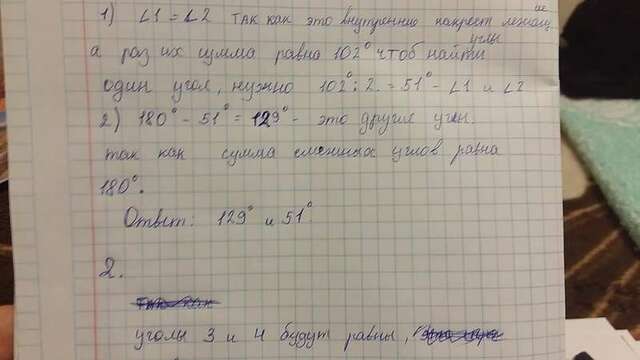 1) ∠1 = ∠2 так как это внутренние накрест лежащ
ие
углы
а раз их сумма равна 102° чтоб найти
один угол, нужно 102° : 2 = 51° - ∠1 и ∠2
2) 180° - 51° = 129° - это другие углы.
так как сумма смежных углов равна
180°.
Ответ: 129° и 51°
2.
так как
углы 3 и 4 будут равны,